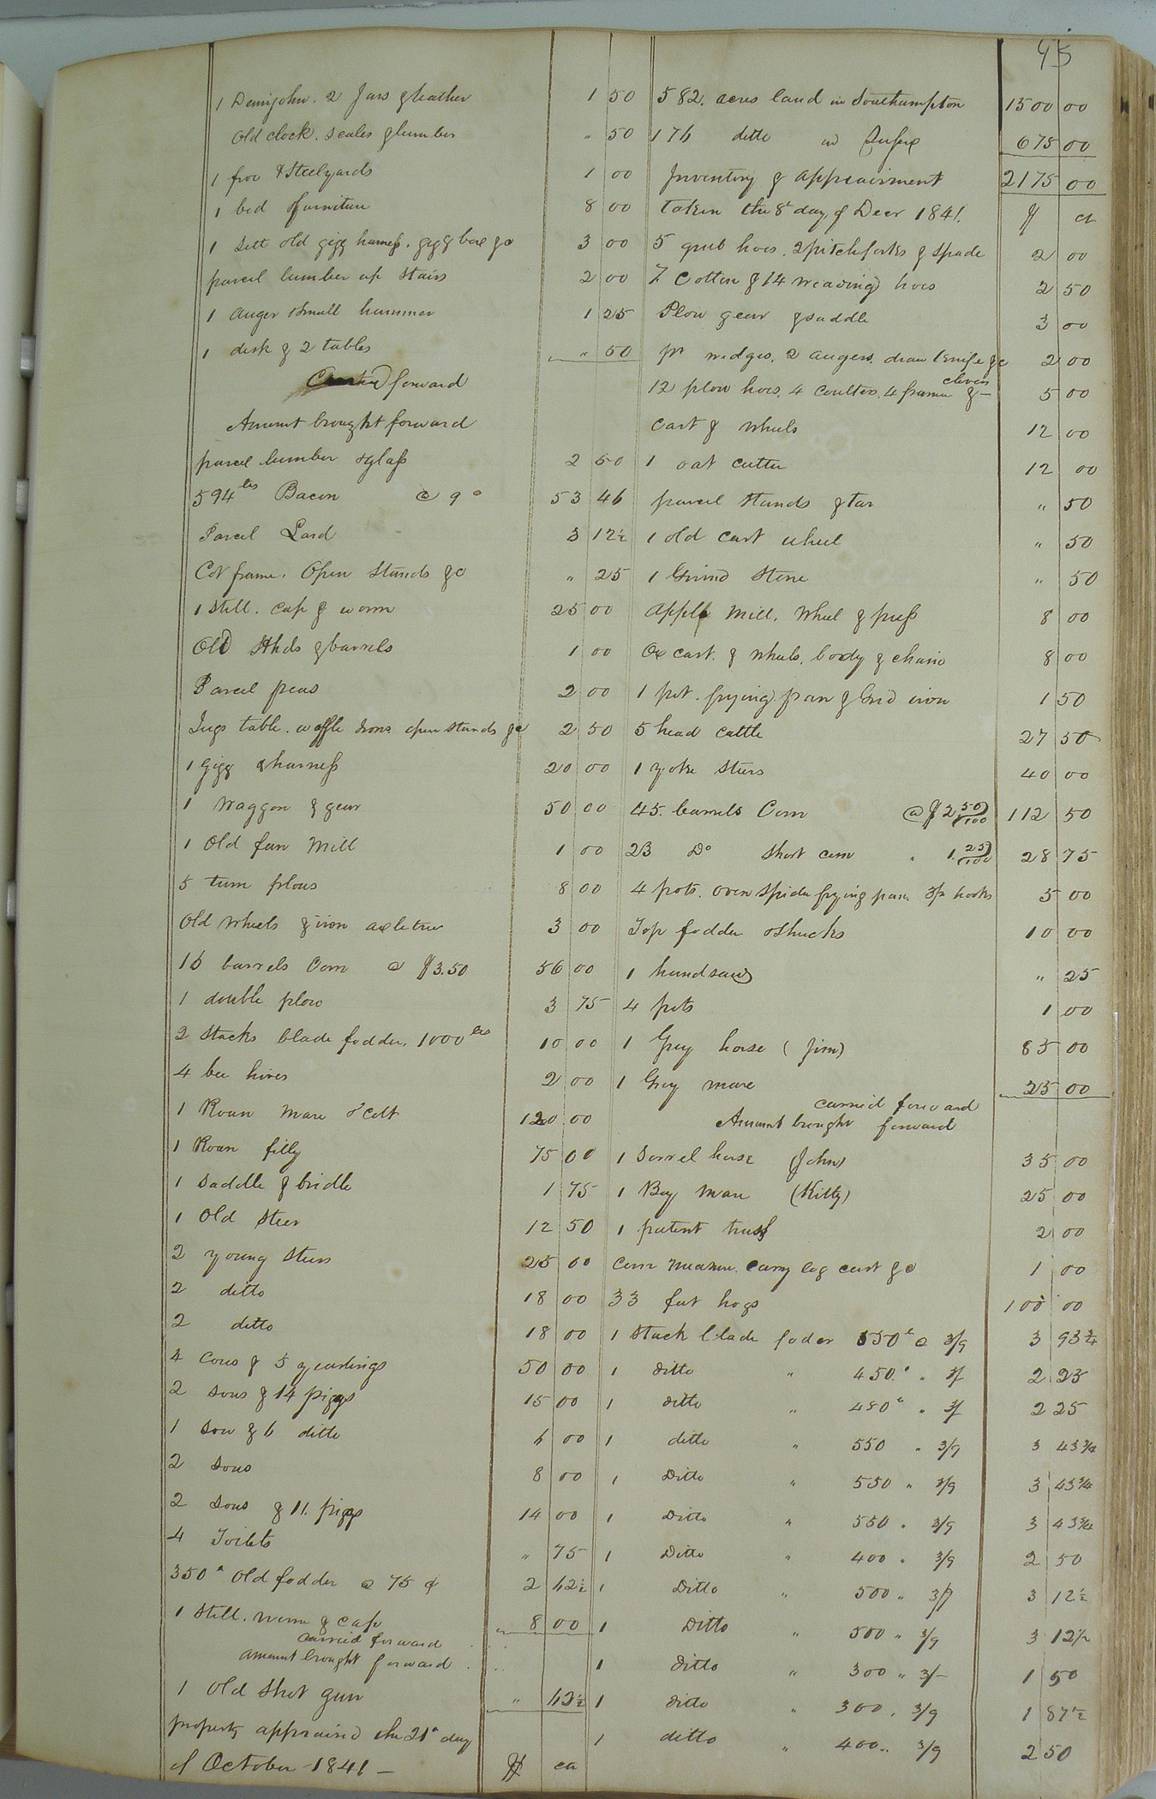 95
1 Demijohn. 2 Jars & leather 1 50
Old clock. scales & lumber " 50
1 froe & Steelyards 1 00
1 bed & furniture 8 00
1 Sett old gigg harness. gigg box &c 3 00
parcel lumber up Stairs 2 00
1 auger small hammer 1 25
1 desk & 2 tables " 50
forward
Amount brought forward
parcel lumber & glass 2 50
594 lbs Bacon @ 9 c 53 46
Parcel Lard 3 12½
Cot frame. Open Stands &c " 25
1 Still. cap & worm 25 00
Old Hhds & barrels 1 00
Parcel peas 2 00
Jugs table. waffle Irons open stands &c 2 50
1 Gigg & harness 20 00
1 Waggon & gear 50 00
1 Old fan Mill 1 00
5 turn plows 8 00
Old Wheels & iron axletree 3 00
16 barrels Corn @ $3.50 56 00
1 double plow 3 75
2 Stacks blade fodder. 1000 lbs 10 00
4 bee hives 2 00
1 Roan Mare & Colt 120 00
1 Roan filly 75 00
1 Saddle & bridle 1 75
1 Old Steer 12 50
2 young Steers 25 00
2 ditto 18 00
2 ditto 18 00
4 Cows & 5 yearlings 50 00
2 Sows & 14 piggs 15 00
1 Sow & 6 ditto 6 00
2 Sows 8 00
2 Sows & 11. piggs 14 00
4 " 75
350 " Old fodder @ 75 ¢ 2 62½
1 Still. worm & cap " 8 00
carried forward
amount brought forward
1 Old Shot gun " 62½
property appraised the 21st day
of October 1841 – $ cts
582. acres land in Southampton 1500 00
176 ditto in Sussex 675 00
2175 00
Inventory & appraisment
taken the 8th day of Decr 1841. $ ct
5 grub hoes. 2 pitchforks & spade 2 00
7 Cotton & 14 weeding hoes 2 50
Plow gear & saddle 3 00
pr wedges. 2 augers. draw knife &c 2 00
12 plow hoes. 4 coulters. 4 frames & clevis – 5 00
Cart & wheels 12 00
1 oat cutter 12 00
parcel Stands & tar " 50
1 old cart wheel " 50
1 Grind Stone " 50
Apple Mill. wheel & press 8 00
Ox cart. & wheels. body & chain 8 00
1 pot. frying pan & Grid iron 1 50
5 head cattle 27 50
1 yoke Steers 40 00
45. barrels Corn @ $2 50/100 112 50
23 Do Short corn " 1 25/100 28 75
4 pots. oven spider frying pan 3 p hooks 5 00
Top fodder & shucks 10 00
1 handsaw " 25
4 pots 1 00
1 Grey horse (Jim) 85 00
1 Grey mare 25 00
carried forward
Amount brought forward
1 Sorrel horse (John) 35 00
1 Bay Mare (Kitty) 25 00
1 patent 2 00
Corn measure. Carry log cart &c 1 00
33 fat hogs 100 00
1 Stack blade foder 550 " @ 3/9 3 93¾
1 ditto " 450. " " 3/ 2 25
1 ditto " 450 " " 3/ 2 25
1 ditto " 550 " 3/9 3 43¾
1 Ditto " 550 " 3/9 3 43¾
1 Ditto " 550 " 3/9 3 43¾
1 Ditto " 400 " 3/9 2 50
1 Ditto " 500 " 3/9 3 12½
1 Ditto " 500 " 3/9 3 12½
1 ditto " 300 " 3/– 1 50
1 ditto " 300 " 3/9 1 87½
1 ditto " 400 " 3/9 2 50